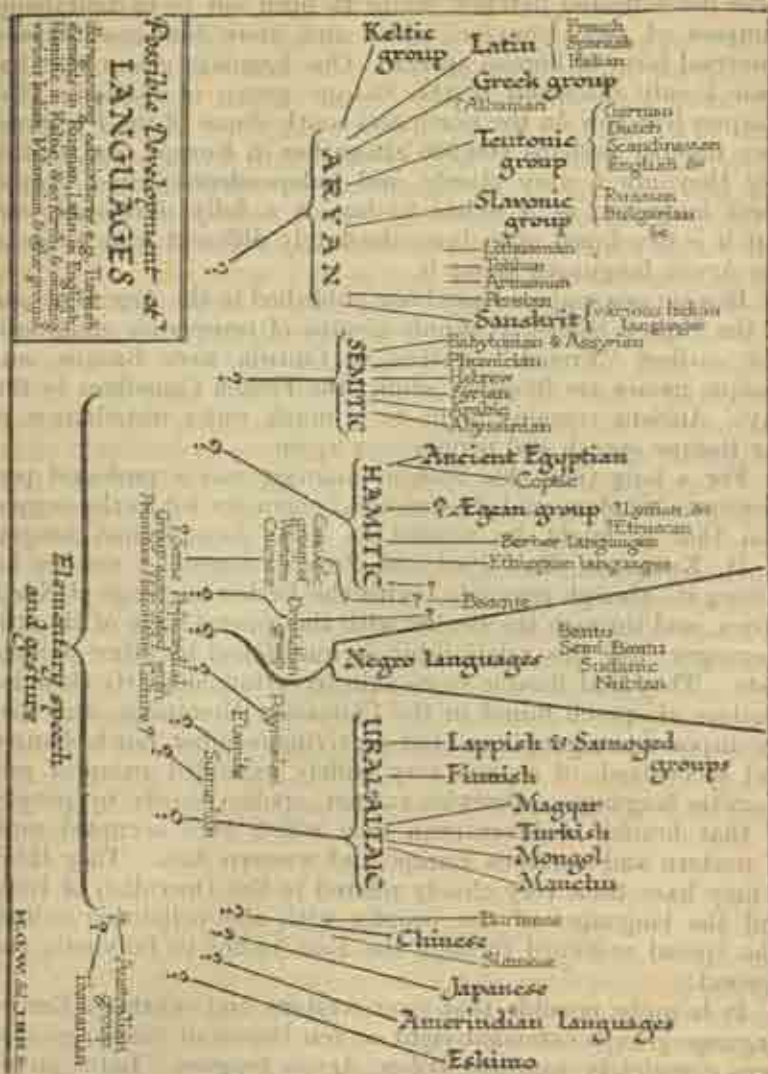 Possible Development of
LANGUAGES
disregarding admixtures e.g. Turkish
elements in Russian, Latin in English,
Hamitic in Keltic, & omitting
various Indian, Melanesian & other groups
Keltic
group
Latin
French
Spanish
Italian
Greek group
? Albanian
Teutonic
group
German
Dutch
Scandinavian
English &c
Slavonic
group
Russian
Bulgarian
&c
Lithuanian
Armenian
Persian
Sanskrit
various Indian
languages
ARYAN
?
Babylonian & Assyrian
Phœnician
Hebrew
Syrian
Arabic
Abyssinian
SEMITIC
?
Ancient Egyptian
Coptic
? Ægean group
?Etruscan
Berber languages
Ethiopian languages
HAMITIC
?
?
? Basque
?
Caucasic
group of
Western
Caucasus
Dravidian
group
? Some Primordial
Group associated with
Primitive Heliolithic Culture ?
?
Negro languages
Bantu
Semi Bantu
Sudanic
Nubian
?
Polynesian
?
Elamite
?
Sumerian
?
Lappish & Samoyed
groups
Finnish
Magyar
Turkish
Mongol
Manchu
URAL-ALTAIC
?
Burmese
Chinese
Siamese
?
Japanese
?
Amerindian languages
?
Eskimo
?
Elementary speech
and gesture
?
Australian
group
?
Tasmanian